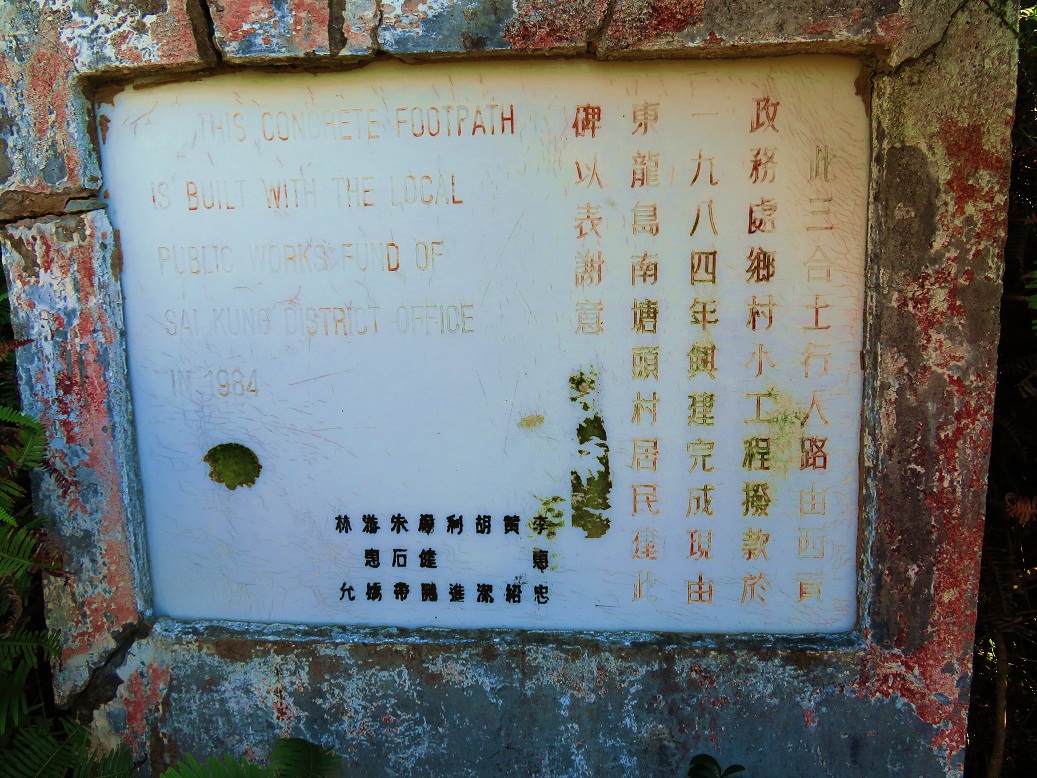 THIS CONCRETE FOOTPATH
IS BUILT WITH THE LOCAL
PUBLIC WORKS FUND OF
SAI KUNG DISTRICT OFFICE
IN 1984
此三合土行人路由西貢
政務處鄉村小工程撥款於
一九八四年興建完成現由
東龍島南塘頭村居民建此
碑以表謝意
李惠忠
黃紹
胡潔
利進
朱石帶
林允